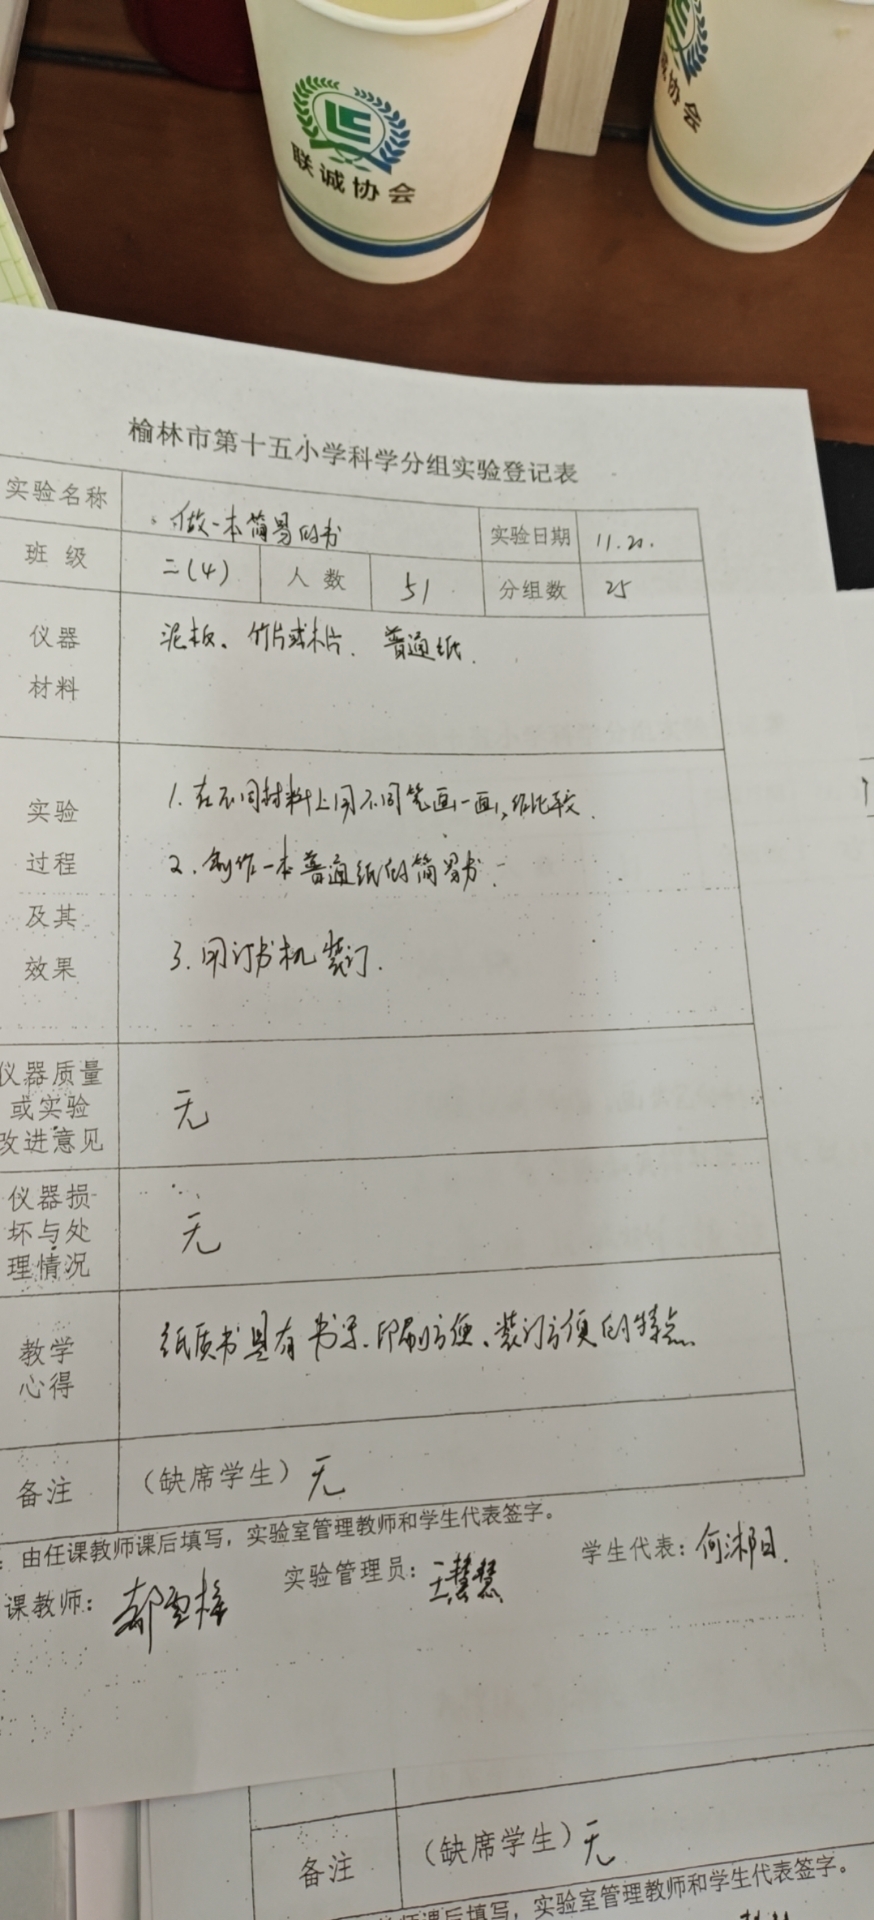 联诚协会
诚协会
榆林市第十五小学科学分组实验登记表
实验名称 做一本简易的书 实验日期 11.20.
班级 二(4) 人数 51 分组数 25
仪器材料 泥板、竹片或木片、普通纸.
实验过程及其效果
1. 在不同材料上用不同笔画一画,作比较.
2. 制作一本普通纸的简易书.
3. 用订书机装订.
仪器质量或实验改进意见 无
仪器损坏与处理情况 无
教学心得 纸质书具有书写、印刷方便、装订方便的特点.
备注 (缺席学生) 无
:由任课教师课后填写,实验室管理教师和学生代表签字。
课教师: 实验管理员:王慧慧 学生代表:
备注 (缺席学生) 无
课后填写,实验室管理教师和学生代表签字。